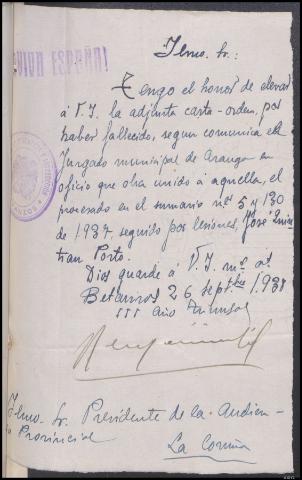 ¡VIVA ESPAÑA!
Ilmo. Sr.:
Tengo el honor de elevar
á V.I. la adjunta carta-orden, por
haber fallecido, segun comunica el
Juzgado municipal de Aranga en
oficio que obra unido á aquella, el
procesado en el sumario nº 5 y 130
de 1937, seguido por lesiones, José Quin
tian Porto.
Dios guarde á V.I. ms as
Betanzos 26 septbre 1938
III Año Triunfal
Ilmo. Sr. Presidente de la Audien-
Provincial
La Coruña